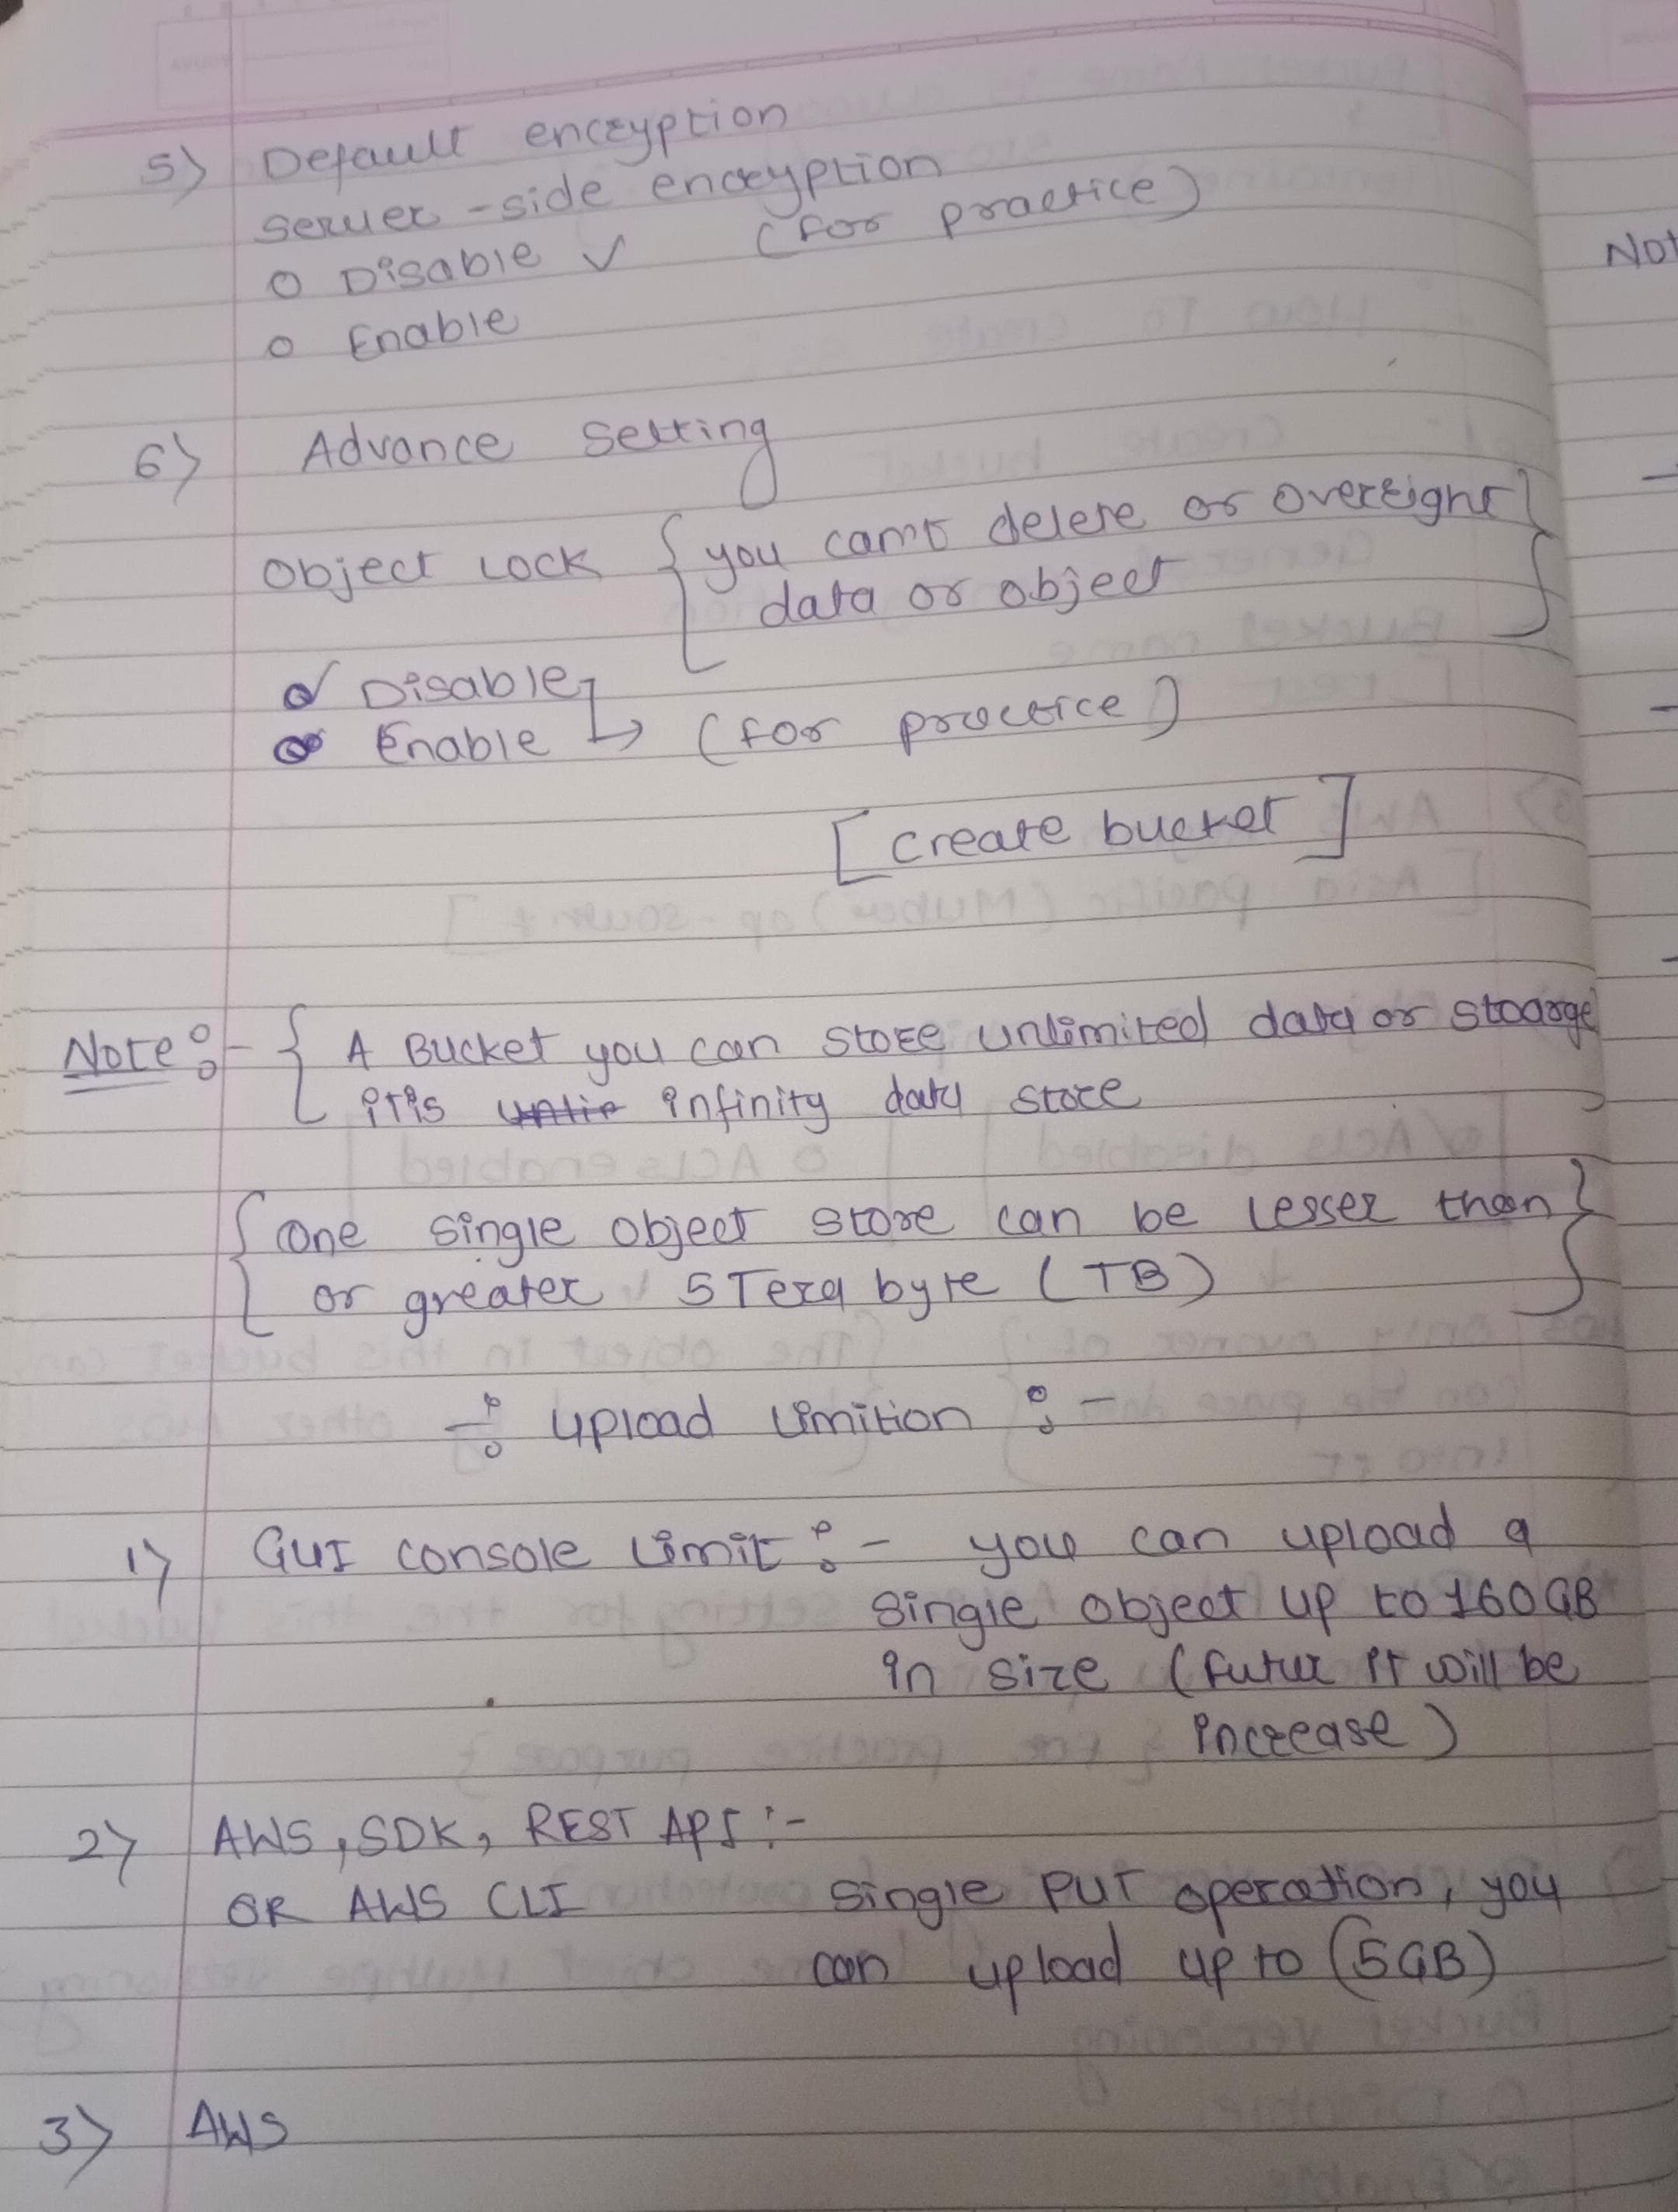 5) Default encryption
Server-side encryption
○ Disable ✓ (for practice)
○ Enable
6) Advance Setting
Object Lock { you can't delete or overright }
data or object
Disable
Enable ↳ (for practice)
[Create bucket]
Note :- { A Bucket you can store unlimited data or stoarge
itis untie infinity data store
{ One single object store can be lesser than }
or greater 5 Tera byte (TB)
-: Upload Limition :-
1) GUI console Limit :- you can upload a
single object up to 160 GB
in size (futur it will be
increase)
2) AWS, SDK, REST API :-
OR AWS CLI single PUT operation, you
can upload up to (5GB)
3) AWS
Not